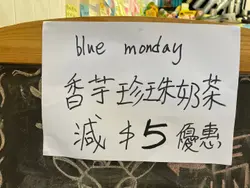 blue monday
香芋珍珠奶茶
減 $5 優惠